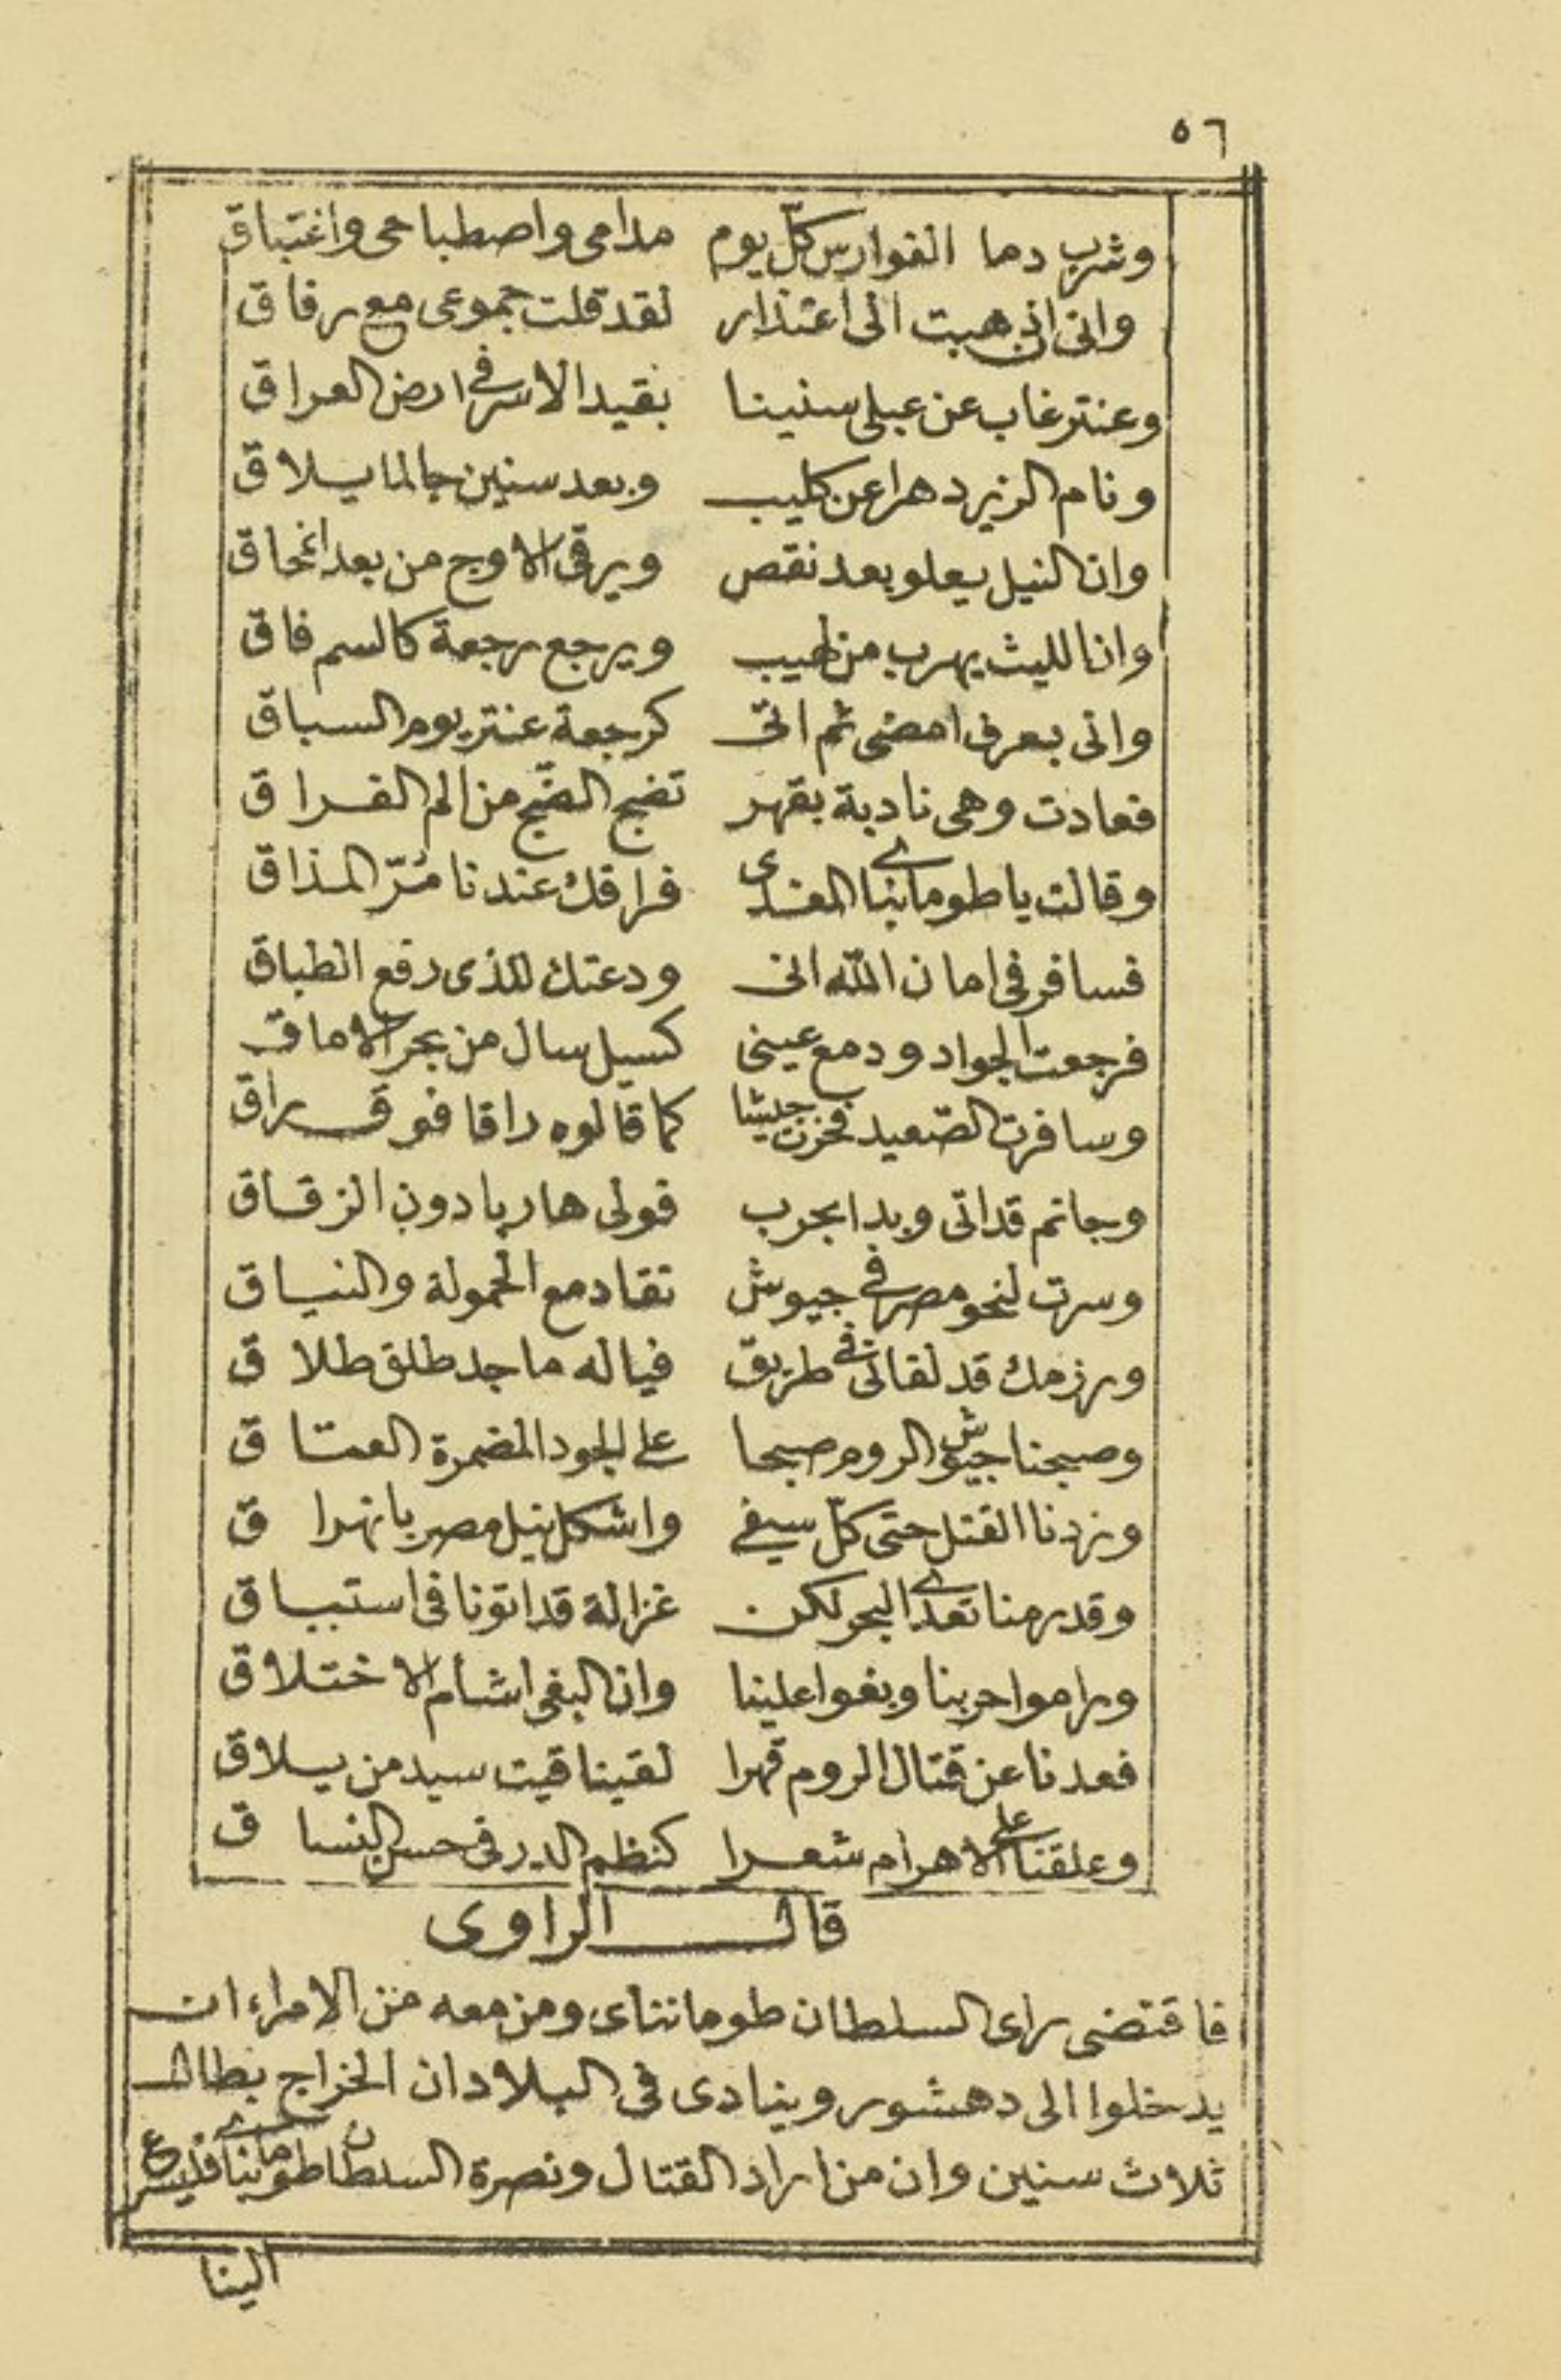 ٥٦
وشرب دما الفوارس كلّ يوم مدامى واصطباحى واغتباق
وانى ان ذهبت الى اعتذار لقد قلت جموعى مع رفاق
وعنتر غاب عن عبلى سنينا بقيد الاسر فى ارض العراق
ونام الزير دهرا عن كليب وبعد سنين جا لما يلاق
وان النيل يعلو بعد نقص ويرقى الاوج من بعد انمحاق
وانا لليث يهرب من لهيب ويرجع رجعة كالسم فاق
وانى بعرفى امضى ثم اتى كرجعة عنتر يوم السباق
فعادت وهى نادبة بقهر تضج الضّج من الم الفراق
وقالت يا طومانباى المفدى فراقك عندنا مُرّ المذاق
فسافر فى امان اللّه انى ودعتك للذى رفع الطباق
فرجعت الجواد ودمع عينى كسيل سال من بحر الاماق
وسافرت الصّعيد فحزت جيشا كما قالوه راقا فوق راق
وجانم قد اتى وبدا بحرب فولى هاربا دون الزقاق
وسرت لنحو مصر فى جيوش تقاد مع الحمولة والنياق
ورزمك قد لقانى فى طريق فياله ماجد طلق طلاق
وصبحنا جيوش الروم صبحا على الجود المضمرة العتاق
وزدنا القتل حتى كلّ سيفى واشكل نيل مصر بانهراق
وقد رمنا تعدى البحر لكن غزالة قد اتونا فى استباق
وراموا حربنا وبغوا علينا وان البغى اشأم الاختلاق
فعدنا عن قتال الروم قهرا لقينا قيت سيد من يلاق
وعلقنا على الاهرام شعرا كنظم الدر فى حسن النساق
قال الراوى
فاقتضى راى السلطان طومانباى ومن معه من الامراء ان
يدخلوا الى دهشور وينادى فى البلاد ان الخراج بطال
ثلاث سنين وان من اراد القتال ونصرة السلطان طومانباى فليسرع
الينا